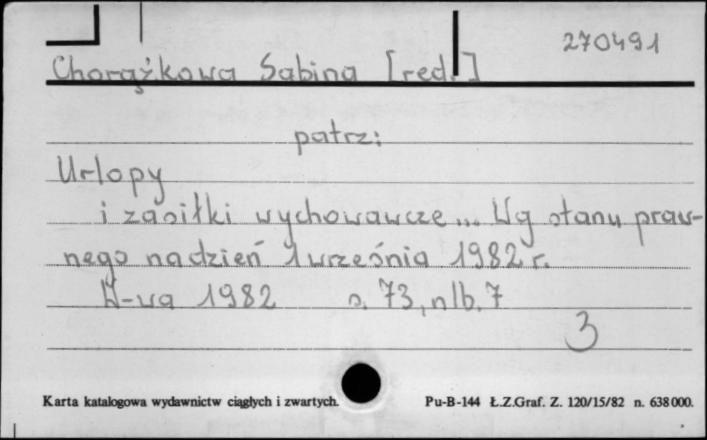 270491
Chorążkowa Sabina [red.]
patrz:
Urlopy
i zasiłki wychowawcze... Wg stanu praw-
nego na dzień 1 września 1982 r.
W-wa 1982 s. 73, nlb. 7
3
Karta katalogowa wydawnictw ciągłych i zwartych.
Pu-B-144 Ł.Z.Graf. Z. 120/15/82 n. 638 000.